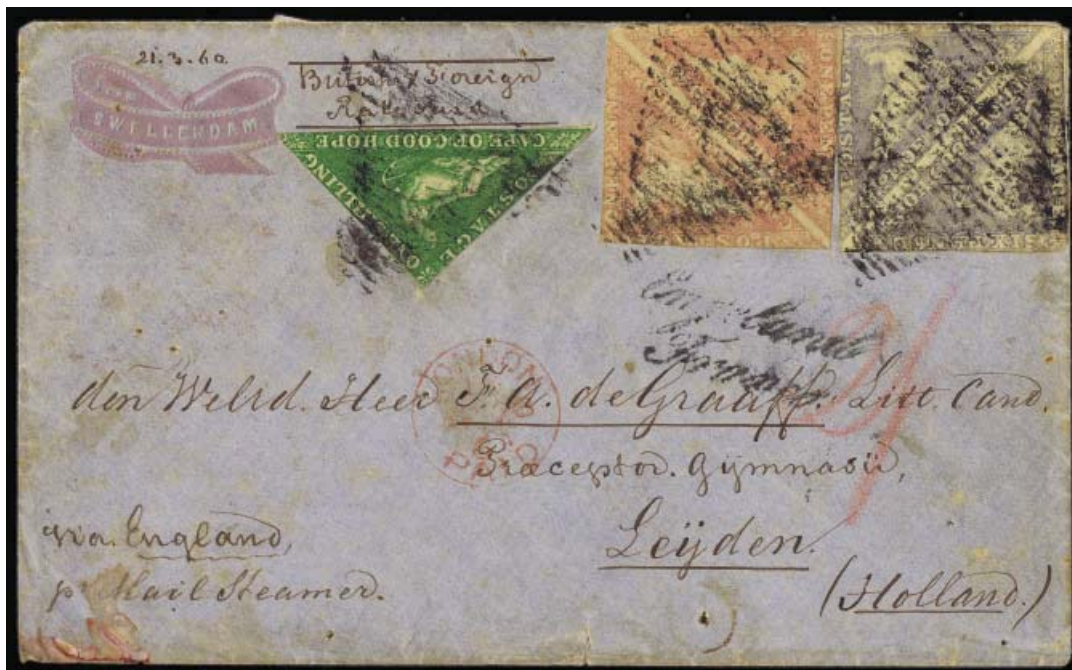 21.3.60
SWELLENDAM
British & Foreign
Rate Paid
CAPE OF GOOD HOPE
POSTAGE
ONE SHILLING
POSTAGE
den Weled. Heer F. A. de Graaff. Litt. Cand.
Praeceptor. Gymnasii,
Leijden.
(Holland.)
via England,
pr Mail Steamer.
LONDON
60